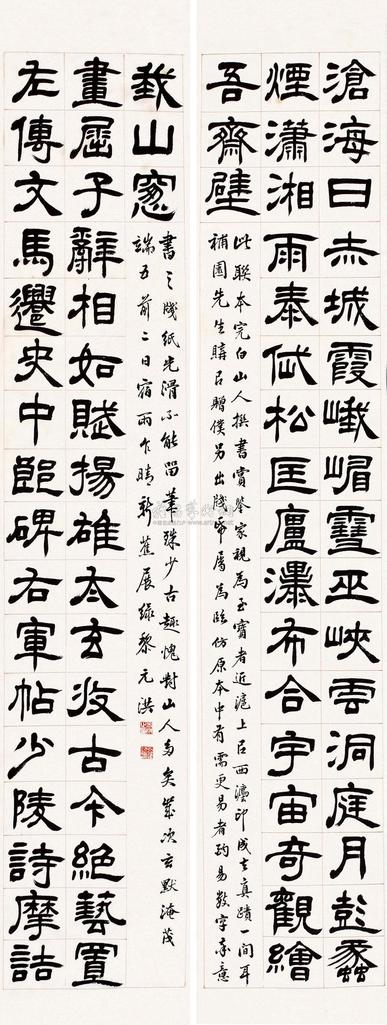 滄海日赤城霞峨嵋雪巫峽雲洞庭月彭蠡
煙瀟湘雨泰岱松匡廬瀑布合宇宙奇觀繪
吾齋壁
此聯本完白山人撰書賞鑒家視為至寶者近滬上已西灋印成去真蹟一間耳
補園先生購以贈僕另出牋帋屬為臨仿原本中有需更易者酌易數字奉意
左傳文馬遷史中郎碑右軍帖少陵詩摩詰
畫屈子辭相如賦揚雄太玄收古今絕藝置
我山窗
書之牋紙光滑不能留筆殊少古趣愧對山人多矣歲次玄默淹茂
端五前二日宿雨乍晴新蕉展綠黎元洪